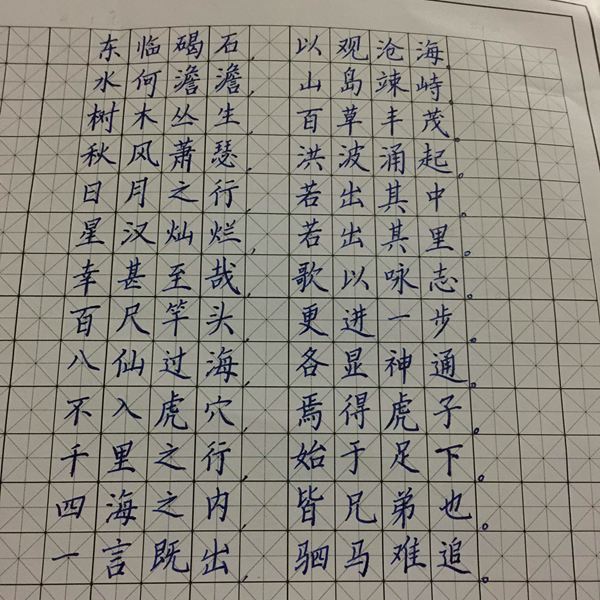 东临碣石，以观沧海。
水何澹澹，山岛竦峙。
树木丛生，百草丰茂。
秋风萧瑟，洪波涌起。
日月之行，若出其中。
星汉灿烂，若出其里。
幸甚至哉，歌以咏志。
百尺竿头，更进一步。
八仙过海，各显神通。
不入虎穴，焉得虎子。
千里之行，始于足下。
四海之内，皆兄弟也。
一言既出，驷马难追。